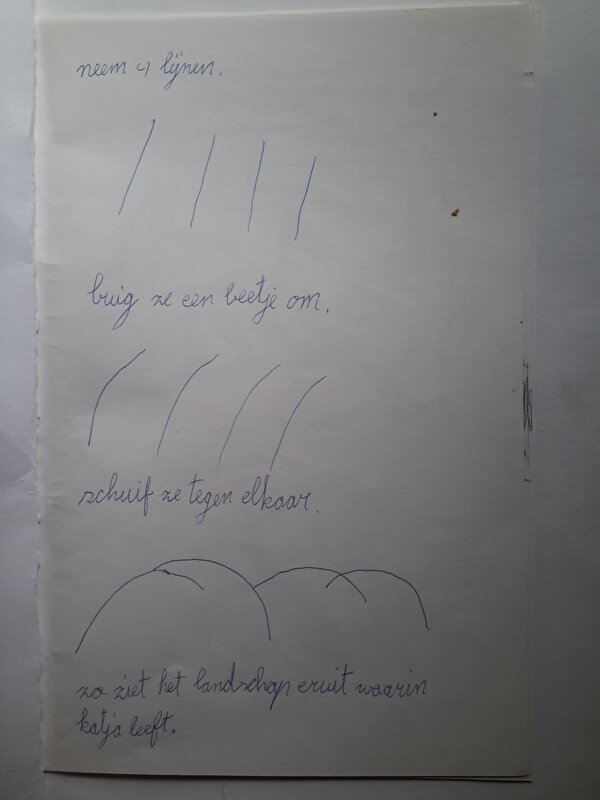 neem 4 lijnen.
buig ze een beetje om.
schuif ze tegen elkaar.
zo ziet het landschap eruit waarin
katja leeft.